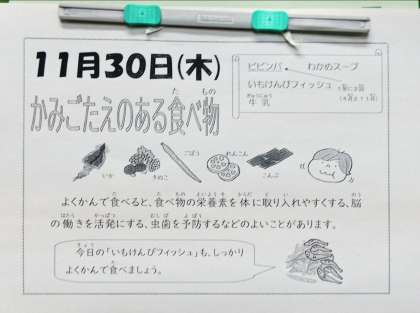 11月30日(木)
ビビンバ ・ わかめスープ
いもけんぴフィッシュ
牛乳
かみごたえのある食べ物
いか きのこ ごぼう れんこん こんぶ
よくかんで食べると、食べ物の栄養素を体に取り入れやすくする、脳
の働きを活発にする、虫歯を予防するなどのよいことがあります。
今日の「いもけんぴフィッシュ」も、しっかり
よくかんで食べましょう。